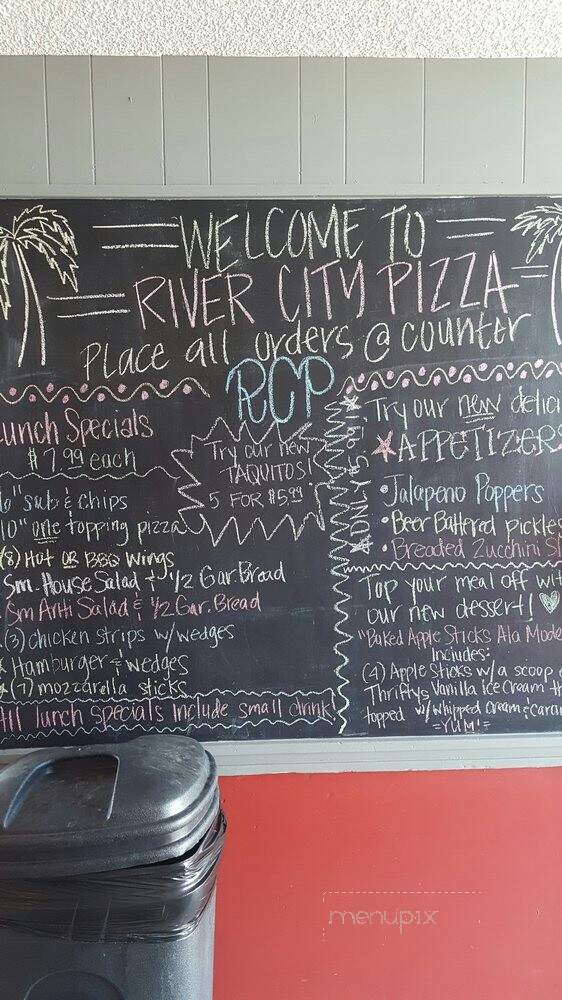 WELCOME TO
RIVER CITY PIZZA
Place all orders @ counter
RCP
Lunch Specials
$7.99 each
6" sub & chips
10" one topping pizza
(8) Hot OR BBQ Wings
Sm. House Salad & 1/2 Gar. Bread
Sm Anti Salad & 1/2 Gar. Bread
(3) chicken strips w/wedges
Hamburger & wedges
(7) mozzarella sticks
All lunch specials include small drink!
Try our new
TAQUITOS!
5 FOR $5.99
ONLY
Try our new delici
APPETIZERS
Jalapeno Poppers
Beer Battered pickles
Breaded Zucchini Sl
Top your meal off wit
our new dessert!
"Baked Apple Sticks Ala Mode
Includes:
(4) Apple Sticks w/a scoop o
Thriftys Vanilla Ice Cream th
topped w/Whipped Cream & Caram
=YUM!=
menupix